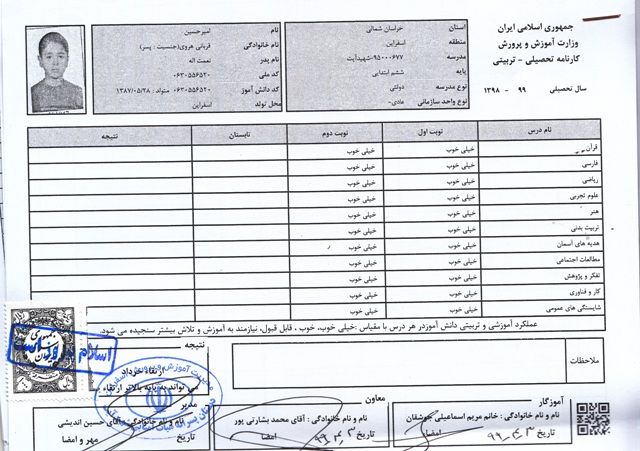 جمهوری اسلامی ایران
وزارت آموزش و پرورش
کارنامه تحصیلی - تربیتی
سال تحصیلی ۹۹ - ۱۳۹۸
استان خراسان شمالی
منطقه اسفراین
مدرسه ۹۵۰۰۰۶۷۷-شهیدآیت
پایه ششم ابتدایی
نوع مدرسه دولتی
نوع واحد سازمانی عادی-
نام امیرحسین
نام خانوادگی قربانی هروی(جنسیت : پسر)
نام پدر نعمت اله
کد ملی ۰۶۳۰۵۵۶۵۲۰
کد دانش آموز ۰۶۳۰۵۵۶۵۲۰ متولد : ۱۳۸۷/۰۵/۲۸
محل تولد اسفراین
نام درس نوبت اول نوبت دوم تابستان نتیجه
قرآن خیلی خوب خیلی خوب
فارسی خیلی خوب خیلی خوب
ریاضی خیلی خوب خیلی خوب
علوم تجربی خیلی خوب خیلی خوب
هنر خیلی خوب خیلی خوب
تربیت بدنی خیلی خوب خیلی خوب
هدیه های آسمان خیلی خوب خیلی خوب
مطالعات اجتماعی خیلی خوب خیلی خوب
تفکر و پژوهش خیلی خوب خیلی خوب
کار و فناوری خیلی خوب خیلی خوب
شایستگی های عمومی خیلی خوب خیلی خوب
عملکرد آموزشی و تربیتی دانش آموزدر هر درس با مقیاس :خیلی خوب، خوب ، قابل قبول، نیازمند به آموزش و تلاش بیشتر سنجیده می شود.
ملاحظات
نتیجه
ارتقاء خرداد
می تواند به پایه بالاتر ارتقاء
آموزگار
نام و نام خانوادگی : خانم مریم اسماعیلی جوشقان
تاریخ ۹۹,۴,۳ امضا
معاون
نام و نام خانوادگی : آقای محمد بشارتی پور
تاریخ ۹۹,۴,۳ امضا
مدیر
نام و نام خانوادگی: آقای حسین اندیشی
تاریخ مهر و امضا
مدیریت آموزش و پرورش اسفراین
جمهوری
اسلام